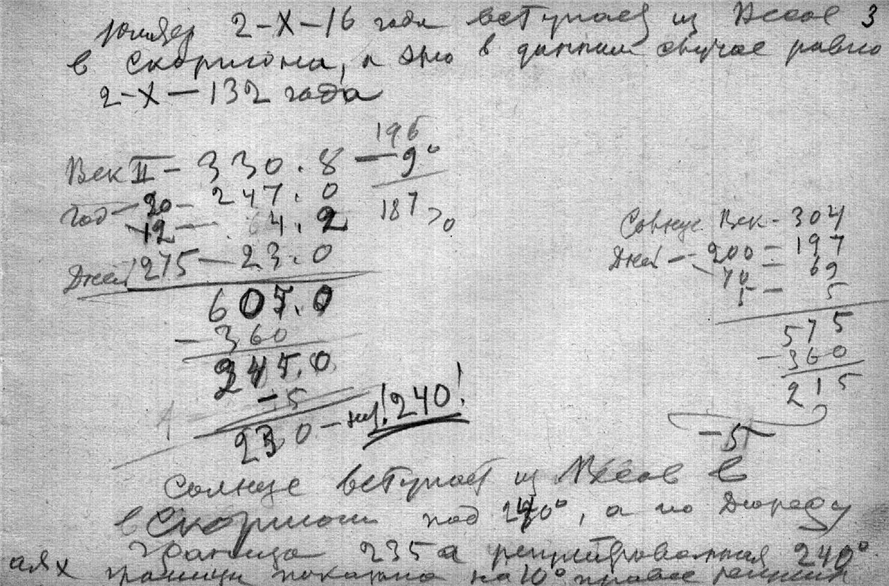 Юпитер 2-X-16 года вступает из Весов 3
в Скорпиона, а это в данном случае равно
2-X-132 года
196
Век II - 330.8 - 9°
Год - 20 - 247.0
187
12 - 64.2
Дней 275 - 23.0
607.0
- 360
245.0
- 5
230 - 240!
Солнце Век - 304
Дней - 200 = 197
70 = 69
5 - 5
575
- 360
215
- 5
Солнце вступает из Весов в
в Скорпион под 240°, а по Дюреру
граница 235 а 240°
граница показана на 10° правее